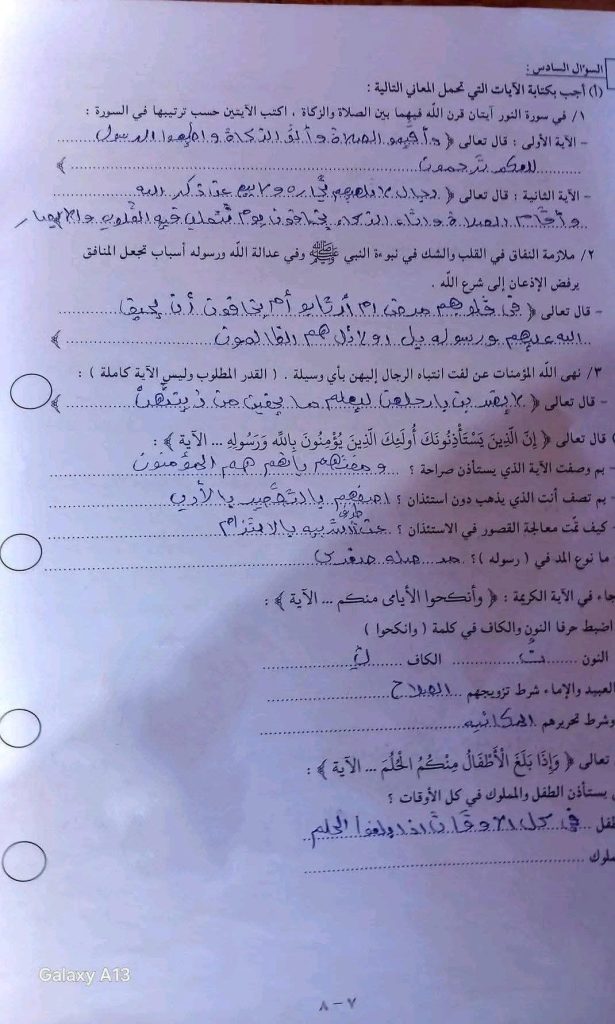 السؤال السادس :
(أ) أجب بكتابة الآيات التي تحمل المعاني التالية :
١/ في سورة النور آيتان قرن الله فيهما بين الصلاة والزكاة ، اكتب الآيتين حسب ترتيبها في السورة :
- الآية الأولى : قال تعالى ﴿ وأقيموا الصلاة وآتو الزكاة واطيعوا الرسول
لعلكم ترحمون ﴾
- الآية الثانية : قال تعالى ﴿ رجال لا تلهيهم تجاره ولا بيع عن ذكر الله
وأقام الصلاة وإيتاء الزكاه يخافون يوم تتقلب فيه القلوب والابصار
٢/ ملازمة النفاق في القلب والشك في نبوءة النبي ﷺ وفي عدالة الله ورسوله أسباب تجعل المنافق
يرفض الإذعان إلى شرع الله .
- قال تعالى ﴿ في قلوبهم مرض ام أرتابو أم يخافون أن يحيق
الله عليهم ورسوله بل اولائك هم الظالمون ﴾
٣/ نهى الله المؤمنات عن لفت انتباه الرجال إليهن بأي وسيلة . ( القدر المطلوب وليس الآية كاملة ) :
- قال تعالى ﴿ لا يضربن بارجلهن ليعلم ما يخفين من زينتهن ﴾
) قال تعالى ﴿ إِنَّ الَّذِينَ يَسْتَأْذِنُونَكَ أُولَئِكَ الَّذِينَ يُؤْمِنُونَ بِاللَّهِ وَرَسُولِهِ ... الآية ﴾ :
- بم وصفت الآية الذي يستأذن صراحة ؟ وصفتهم بانهم هم المؤمنون
- بم تصف أنت الذي يذهب دون استئذان ؟ اصفهم بالتقصير بالأدب
- كيف تمّت معالجة القصور في الاستئذان ؟ عن طريق التنبيه بالالتزام
ما نوع المد في ( رسوله )؟ مد صله صغرى
جاء في الآية الكريمة : ﴿ وأنكحوا الأيامى منكم ... الآية ﴾ :
اضبط حرفا النون والكاف في كلمة ( وانكحوا )
النون نْ الكاف كِ
العبيد والإماء شرط تزويجهم الصلاح
وشرط تحريرهم المكاتبه
تعالى ﴿ وَإِذَا بَلَغَ الْأَطْفَالُ مِنْكُمُ الْحُلُمَ ... الآية ﴾ :
يستأذن الطفل والمملوك في كل الأوقات ؟
طفل في كل الاوقات اذا بلغوا الحلم
مملوك
Galaxy A13
٧ - ٨